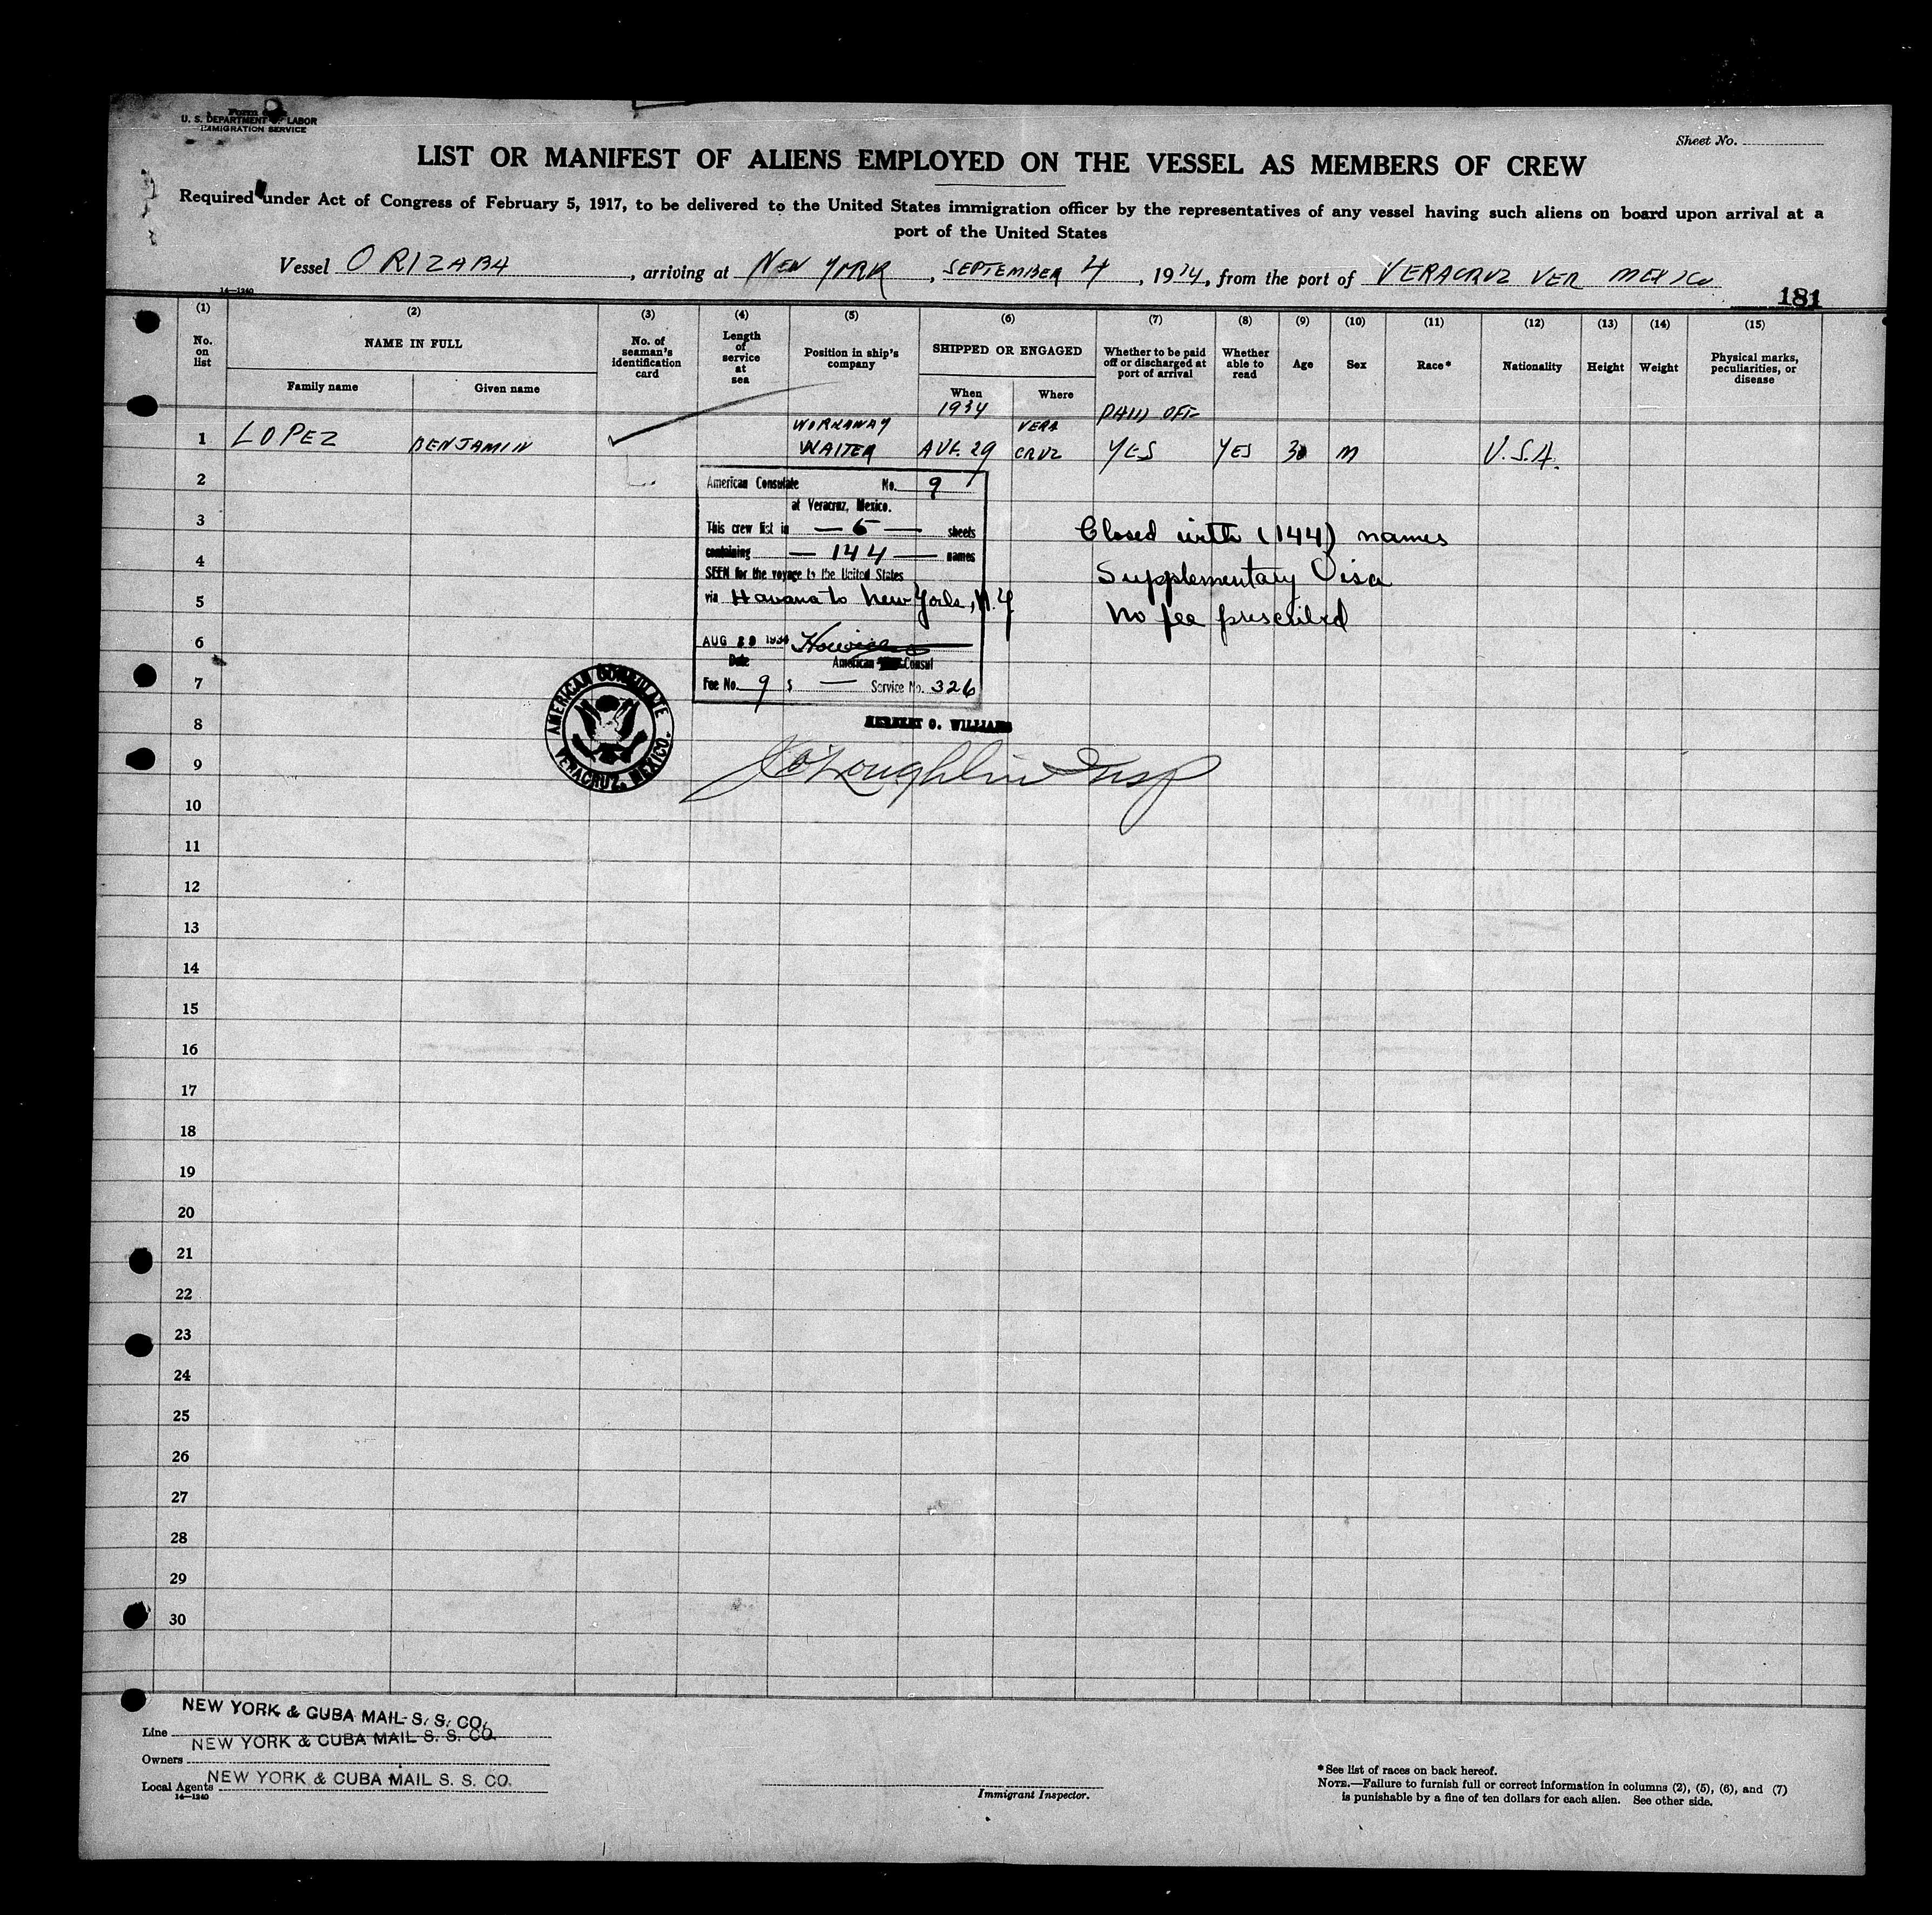 Form
U. S. DEPARTMENT OF LABOR
IMMIGRATION SERVICE
Sheet No.
LIST OR MANIFEST OF ALIENS EMPLOYED ON THE VESSEL AS MEMBERS OF CREW
Required under Act of Congress of February 5, 1917, to be delivered to the United States immigration officer by the representatives of any vessel having such aliens on board upon arrival at a
port of the United States
Vessel ORIZABA, arriving at NEW YORK, SEPTEMBER 4, 1934, from the port of VERACRUZ VER MEXICO
14—1240
181
(1) (2) (3) (4) (5) (6) (7) (8) (9) (10) (11) (12) (13) (14) (15)
No. on list
NAME IN FULL
Family name
Given name
No. of seaman's identification card
Length of service at sea
Position in ship's company
SHIPPED OR ENGAGED
When
Where
Whether to be paid off or discharged at port of arrival
Whether able to read
Age
Sex
Race*
Nationality
Height
Weight
Physical marks, peculiarities, or disease
1934 PAID OFF
WORKAWAY VERA
1 LOPEZ BENJAMIN WAITER AUG. 29 CRUZ YES YES 30 M U.S.A.
2
3
4
5
6
7
8
9
10
11
12
13
14
15
16
17
18
19
20
21
22
23
24
25
26
27
28
29
30
American Consulate No. 9
at Veracruz, Mexico.
This crew list in — 5 — sheets
containing — 144 — names
SEEN for the voyage to the United States
via Havana to New York, N.Y
AUG 29 1934
Date American Consul
Fee No. 9 $ — Service No. 326
HERBERT O. WILLIAMS
Closed with (144) names
Supplementary Visa
No fee prescribed
AMERICAN CONSULATE
VERACRUZ, MEXICO.
O'Loughlin Insp
NEW YORK & CUBA MAIL S. S. CO.
Line
NEW YORK & CUBA MAIL S. S. CO.
Owners
NEW YORK & CUBA MAIL S. S. CO.
Local Agents
14—1240
Immigrant Inspector.
*See list of races on back hereof.
NOTE.—Failure to furnish full or correct information in columns (2), (5), (6), and (7)
is punishable by a fine of ten dollars for each alien. See other side.